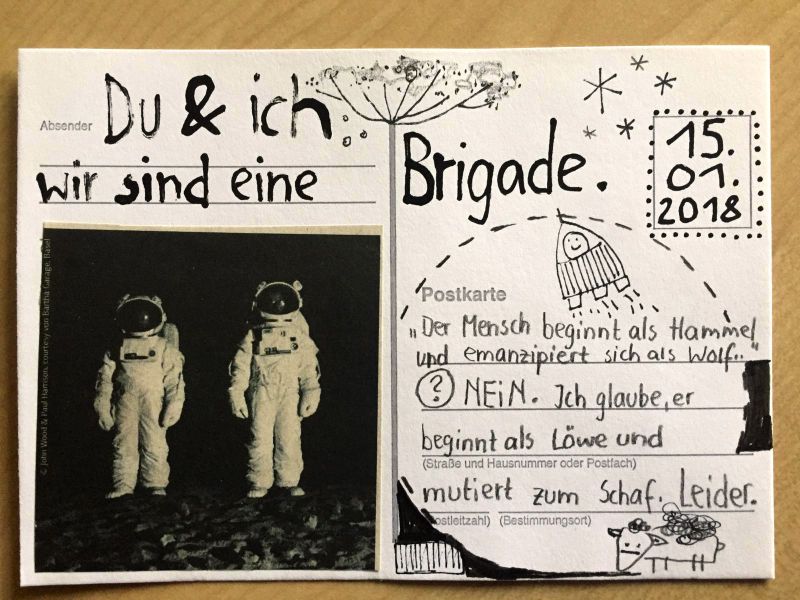 Absender
Du & ich
wir sind eine
Brigade.
15.
01.
2018
© John Wood & Paul Harrison, courtesy von Bartha Garage, Basel
Postkarte
„Der Mensch beginnt als Hammel
und emanzipiert sich als Wolf.."
? NEiN. Ich glaube, er
beginnt als Löwe und
(Straße und Hausnummer oder Postfach)
mutiert zum Schaf. Leider.
ostleitzahl) (Bestimmungsort)